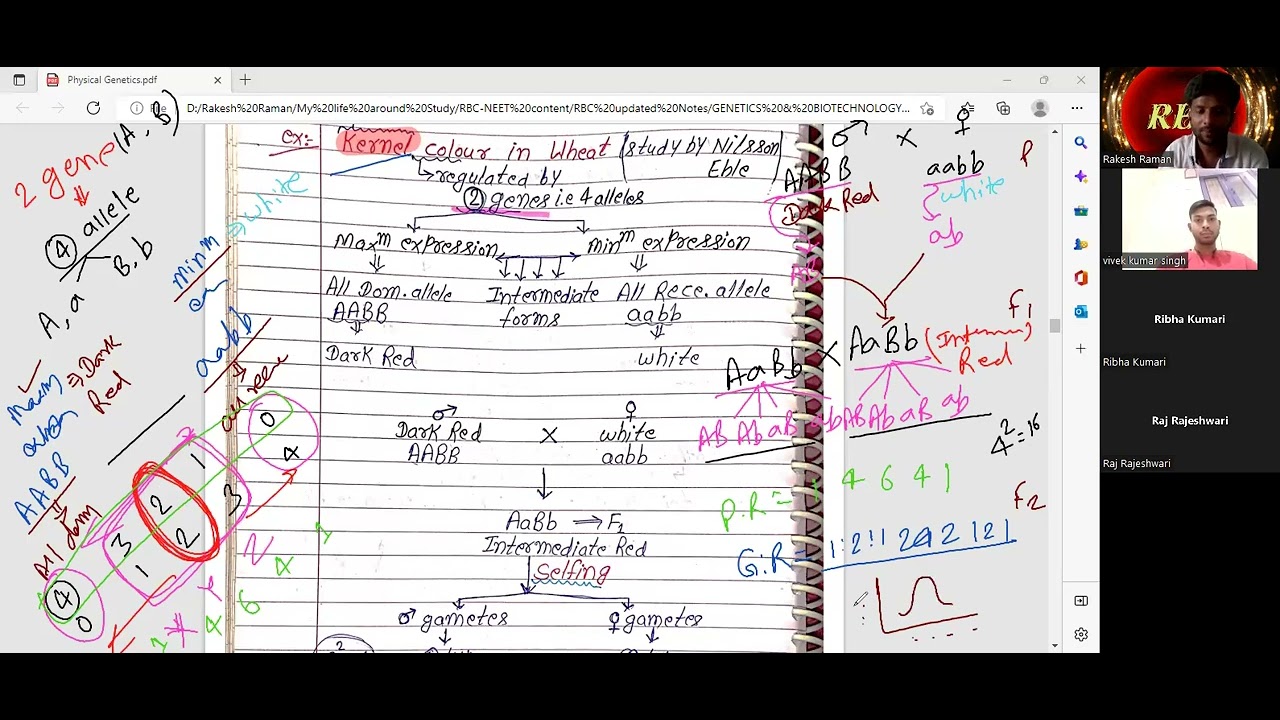 Physical Genetics.pdf
D:/Rakesh%20Raman/My%20life%20around%20Study/RBC-NEET%20content/RBC%20updated%20Notes/GENETICS%20&%20BIOTECHNOLOGY...
ex:- Kernel colour in Wheat (study by Nilsson
Eble)
regulated by
② genes i.e 4 alleles
Maxm expression Minm expression
All Dom. allele Intermediate All Rece. allele
AABB forms aabb
Dark Red white
♂ ♀
Dark Red X white
AABB aabb
AaBb ⇒ F1
Intermediate Red
Selfing
♂ gametes ♀ gametes
2 gene (A, B)
④ allele
A, a B, b
minm ⇒ white
aabb
Maxm ⇒ Dark
Red
when
AABB
All dom
0
4
1
3
2
2
3
1
④
0
1 4 6 4 1
♂ x ♀
AABB aabb P
Dark Red white
ab
F1
AaBb X AaBb (Interm)
Red
AB Ab aB ab AB Ab aB ab
4²=16
P.R = 1 4 6 4 1
F2
G.R = 1:2:1 2 4 2 1 2 1
RB
Rakesh Raman
vivek kumar singh
Ribha Kumari
Ribha Kumari
Raj Rajeshwari
Raj Rajeshwari